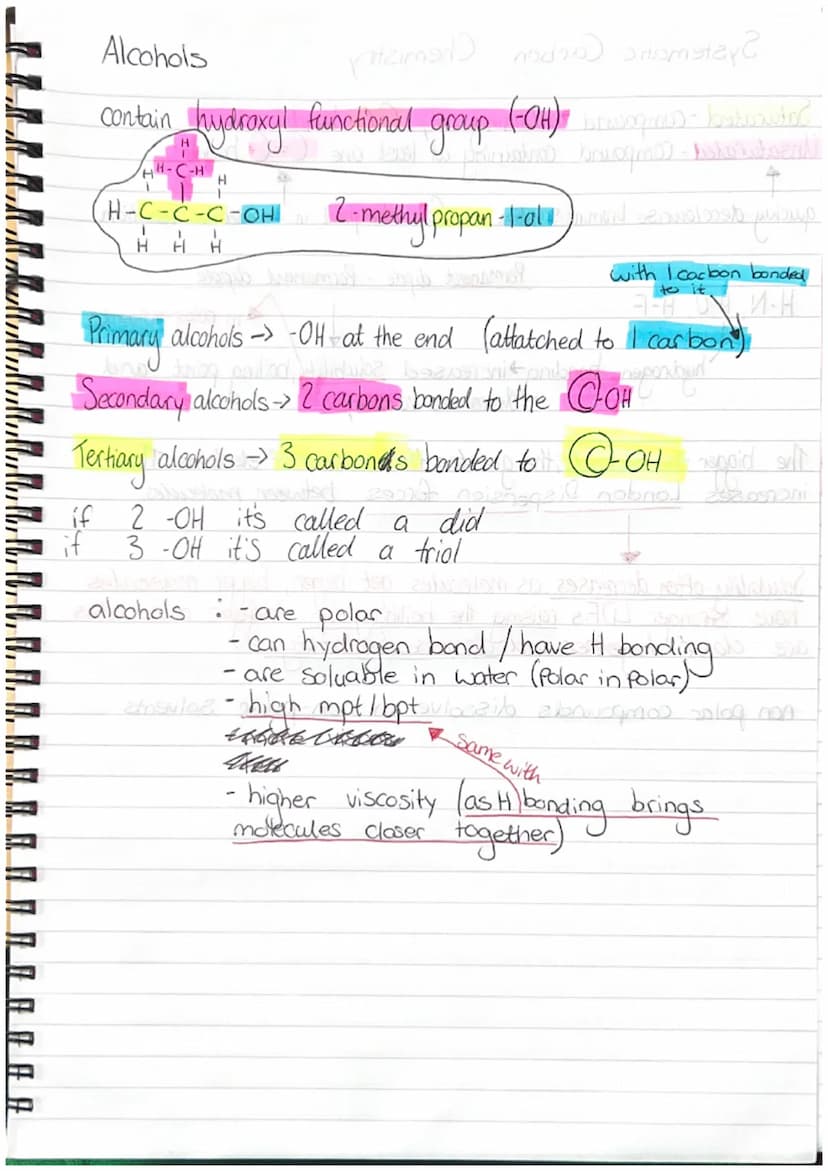 Alcohols
contain hydroxyl functional group (-OH)
H
H-C-H
H H
H-C-C-C-OH 2-methylpropan-1-ol
H H H
with 1 carbon bonded
to it
Primary alcohols -> -OH at the end (attatched to 1 carbon)
Secondary alcohols -> 2 carbons bonded to the C-OH
Tertiary alcohols -> 3 carbons bonded to C-OH
if 2 -OH it's called a diol
if 3 -OH it's called a triol
alcohols : - are polar
- can hydrogen bond / have H bonding
- are soluable in water (Polar in polar)
- high mpt/bpt
same with
- higher viscosity (as H bonding brings
molecules closer together)